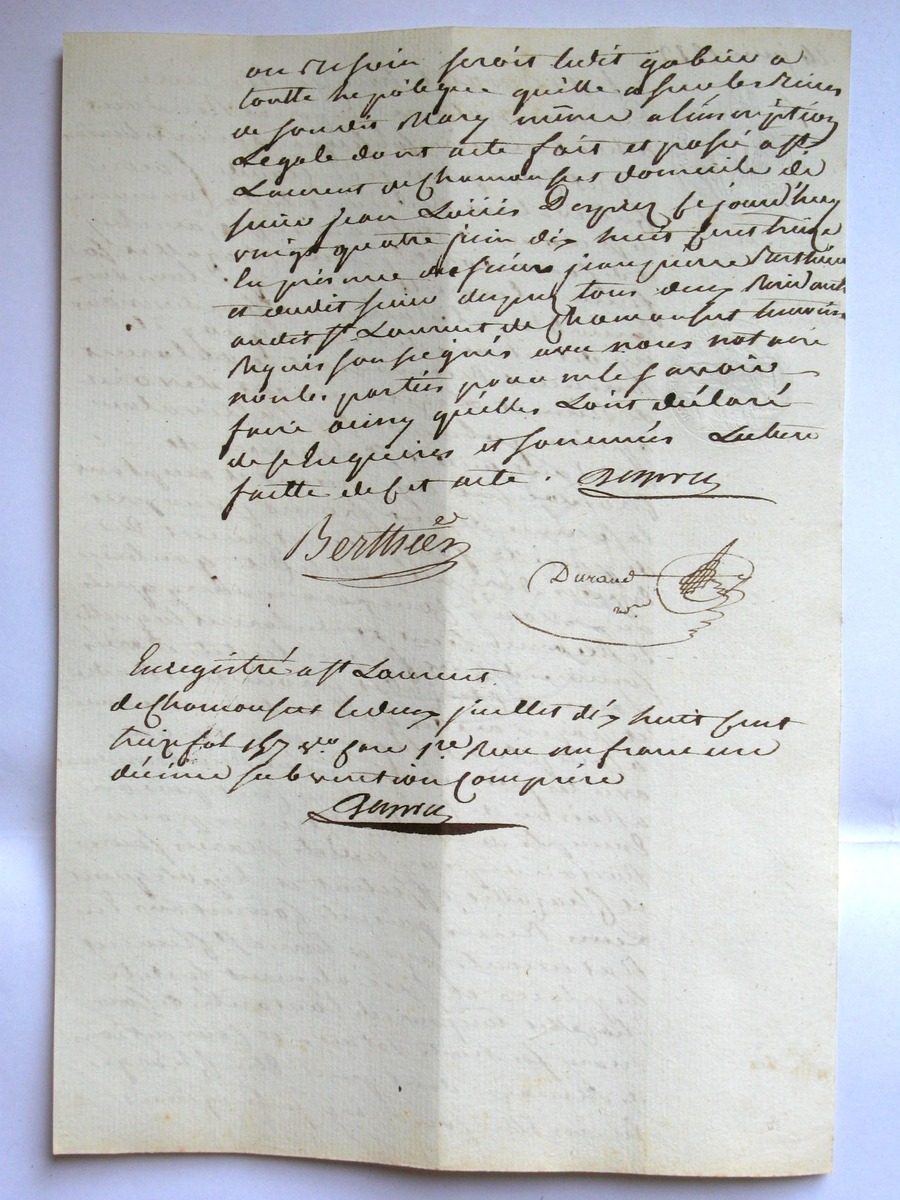 au besoin seroit ledit gabieu a
toutte hepoteque quelle a sur les biens
de son dit Mary même a l'inscription
Légale dont acte fait et passé a St
Laurent de Chamousset domicile de
sieur jean Louis Desprez ce jourd'huy
vingt quatre juin dix huit cent treize
En présence de sieurs jean pierre Berthier
et dudit sieur desprez tous deux Residants
audit St Laurent de Chamousset temoins
Requis soussignés avec nous notaire
non les parties pour ne le savoir
faire ainsy quelles l'ont déclaré
de ce Enquises et sommées Lecture
faitte de cet acte.
Berthier
Durand
nre
Enregistré a St Laurent
de Chamousset le deux juillet dix huit cent
treize fol 157 vo Case 1re Reçu un franc un
décime subvention Comprise